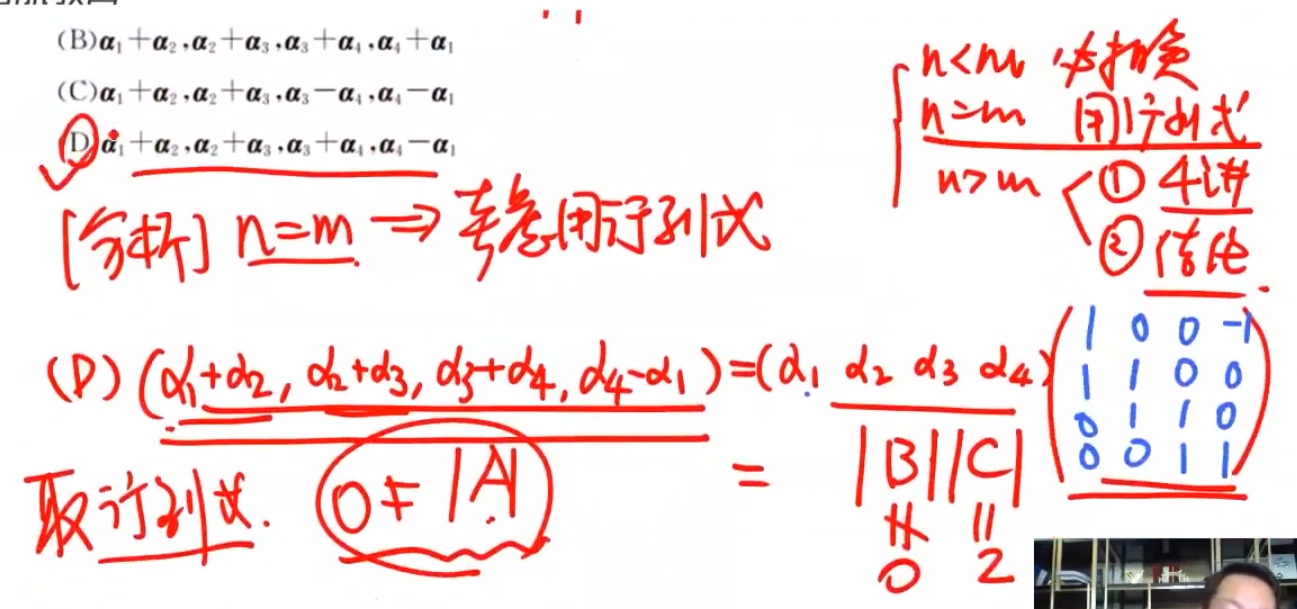 (B)α₁+α₂,α₂+α₃,α₃+α₄,α₄+α₁
(C)α₁+α₂,α₂+α₃,α₃-α₄,α₄-α₁
(D)α₁+α₂,α₂+α₃,α₃+α₄,α₄-α₁
n<m 必相关
n=m 用行列式
n>m ① 4讲
②
[分析] n=m ⇒ 考虑用行列式
(D) (α₁+α₂, α₂+α₃, α₃+α₄, α₄-α₁)=(α₁ α₂ α₃ α₄)
1 0 0 -1
1 1 0 0
0 1 1 0
0 0 1 1
取行列式. 0≠|A| = |B||C|
∦ ||
0 2